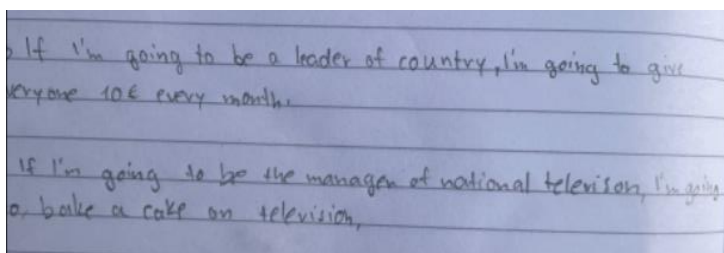 If I'm going to be a leader of country, I'm going to give
veryone 10€ every month.
If I'm going to be the manager of national televison, I'm going
o, bake a cake on television,